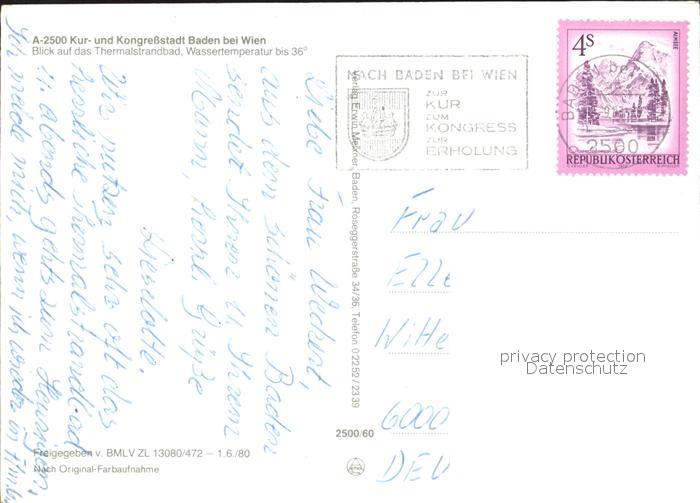 A-2500 Kur- und Kongreßstadt Baden bei Wien
Blick auf das Thermalstrandbad, Wassertemperatur bis 36°
NACH BADEN BEI WIEN
ZUR
KUR
ZUM
KONGRESS
ZUR
ERHOLUNG
4S
ALMSEE
2500
REPUBLIK ÖSTERREICH
Liebe Frau Weckert,
aus dem schönen Baden
sendet Ihnen u. Ihrem
Mann, herzl. Grüße
Lieselotte.
Wir nutzen sehr oft das
herrliche Thermalstrandbad
u. abends gehts zum Heurigen.
Ich melde mich, wenn ich wieder in
Verlag Erwin Meißner, Baden, Roseggerstraße 34/36, Telefon 0 22 52/23 39
Frau
Elle
Witte
6000
DEU
privacy protection
Datenschutz
2500/60
Freigegeben v. BMLV ZL 13080/472 – 1.6./80
Nach Original-Farbaufnahme